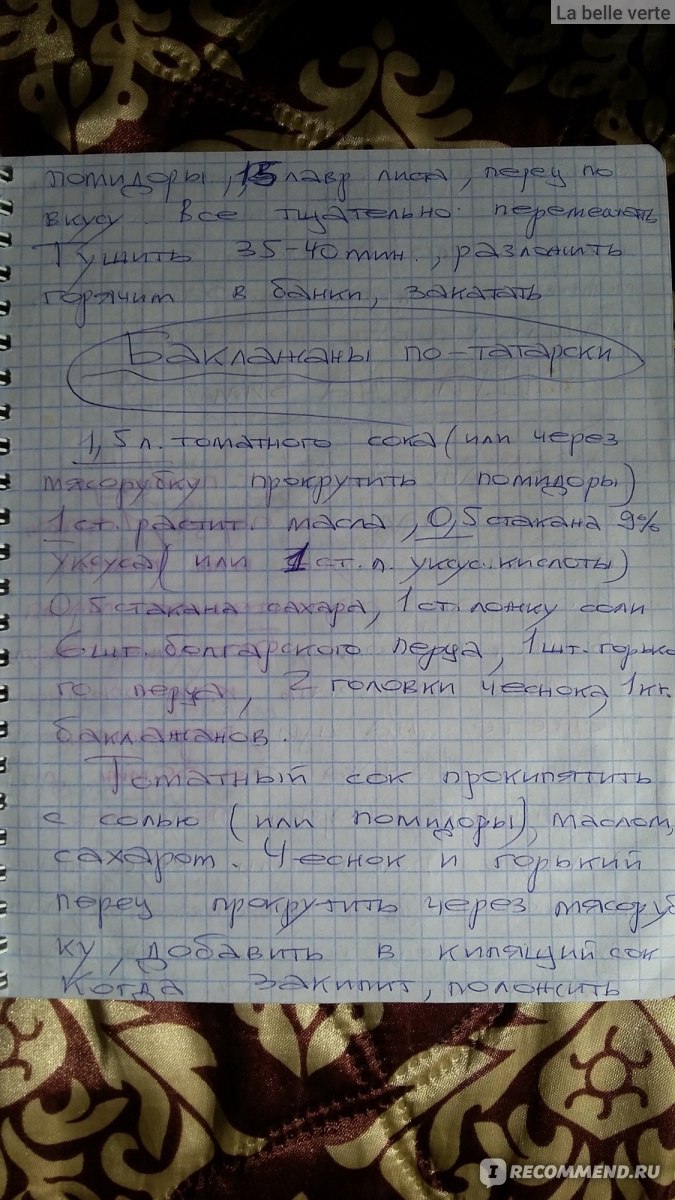 La belle verte
помидоры, 15 лавр листа, перец по
вкусу. Все тщательно перемешать
Тушить 35-40 мин., разложить
горячим в банки, закатать
Баклажаны по-татарски
1,5 л. томатного сока (или через
мясорубку прокрутить помидоры)
1 ст. растит. масла, 0,5 стакана 9%
уксуса (или 1 ст. л. уксус. кислоты)
0,5 стакана сахара, 1 ст. ложку соли
6 шт. болгарского перца, 1 шт. горько
го перца, 2 головки чеснока, 1 кг.
баклажанов.
Томатный сок прокипятить
с солью (или помидоры), маслом,
сахаром. Чеснок и горький
перец прокрутить через мясоруб
ку, добавить в кипящий сок
Когда закипит, положить
IRECOMMEND.RU